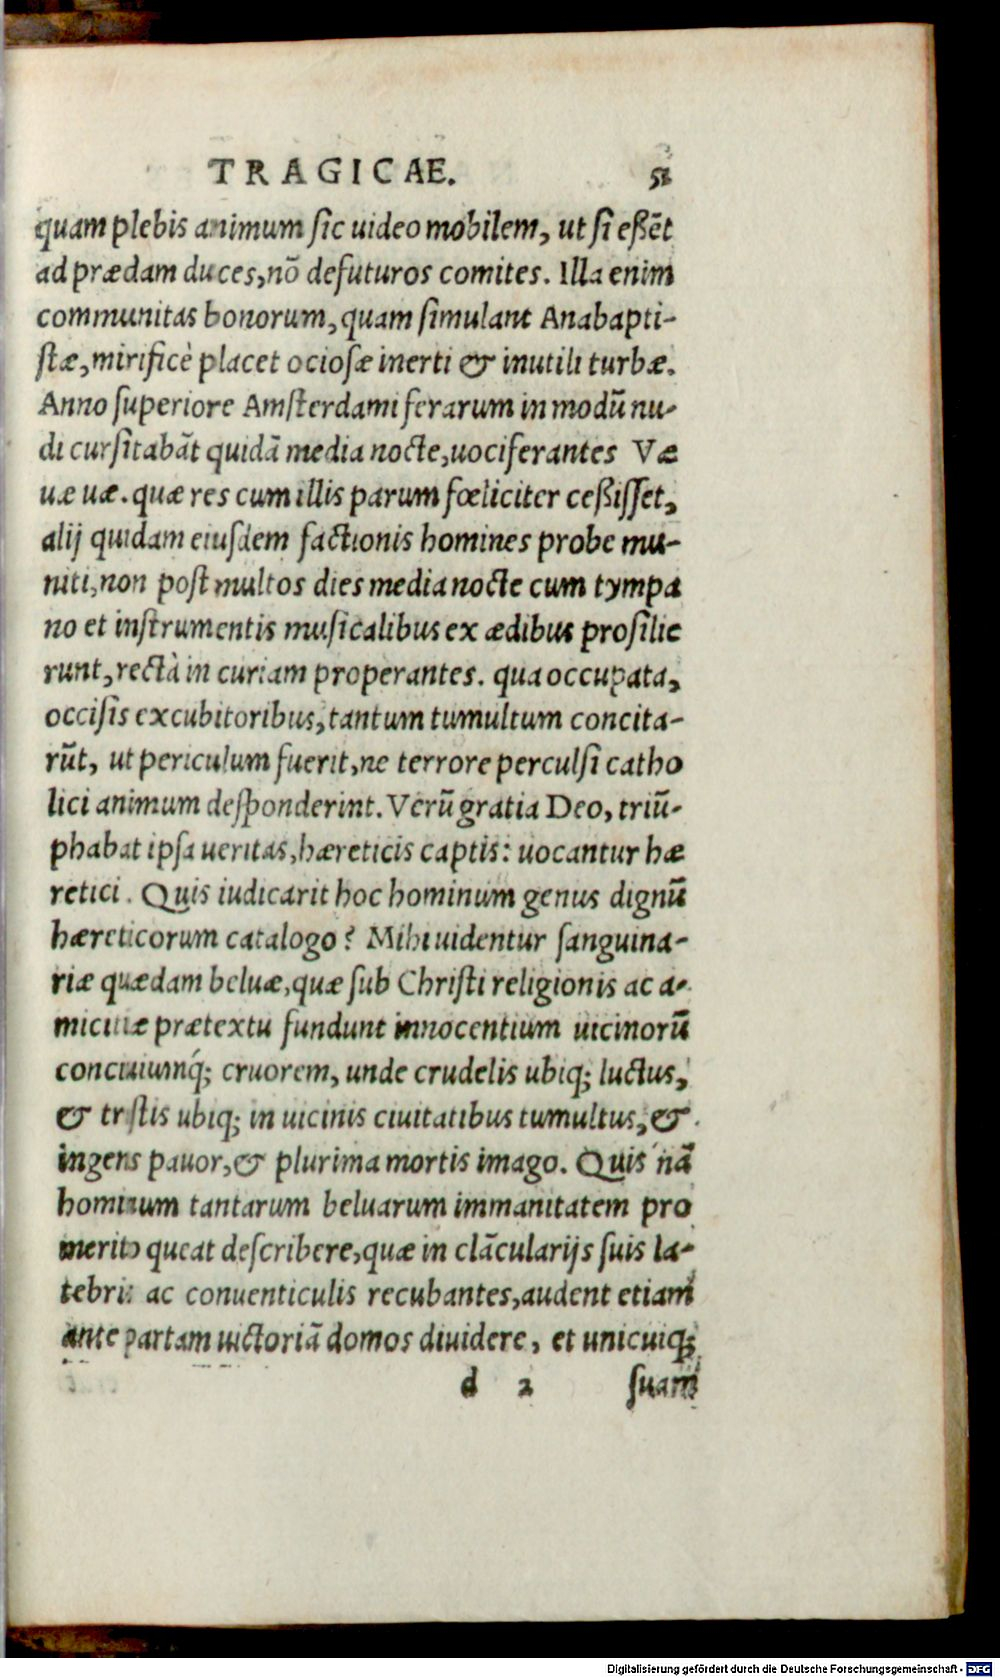 TRAGICAE. 51
quam plebis animum sic uideo mobilem, ut si eßēt
ad prædam duces, nō defuturos comites. Illa enim
communitas bonorum, quam simulant Anabapti-
stæ, mirificè placet ociosæ inerti & inutili turbæ.
Anno superiore Amsterdami ferarum in modū nu-
di cursitabāt quidā media nocte, uociferantes Væ
uæ uæ. quæ res cum illis parum fœliciter ceßisset,
alij quidam eiusdem factionis homines probe mu-
niti, non post multos dies media nocte cum tympa
no et instrumentis musicalibus ex ædibus prosilie
runt, rectà in curiam properantes. qua occupata,
occisis excubitoribus, tantum tumultum concita-
rūt, ut periculum fuerit, ne terrore perculsi catho
lici animum desponderint. Verū gratia Deo, triū-
phabat ipsa ueritas, hæreticis captis: uocantur hæ
retici. Quis iudicarit hoc hominum genus dignū
hæreticorum catalogo? Mihi uidentur sanguina-
riæ quædam beluæ, quæ sub Christi religionis ac a-
micitiæ prætextu fundunt innocentium uicinorū
conciuiumq́; cruorem, unde crudelis ubiq; luctus,
& tristis ubiq; in uicinis ciuitatibus tumultus, &
ingens pauor, & plurima mortis imago. Quis nā
hominum tantarum beluarum immanitatem pro
merito queat describere, quæ in clāculariis suis la-
tebris ac conuenticulis recubantes, audent etiam
ante partam uictoriā domos diuidere, et unicuiq;
d 2 suam
Digitalisierung gefördert durch die Deutsche Forschungsgemeinschaft - DFG